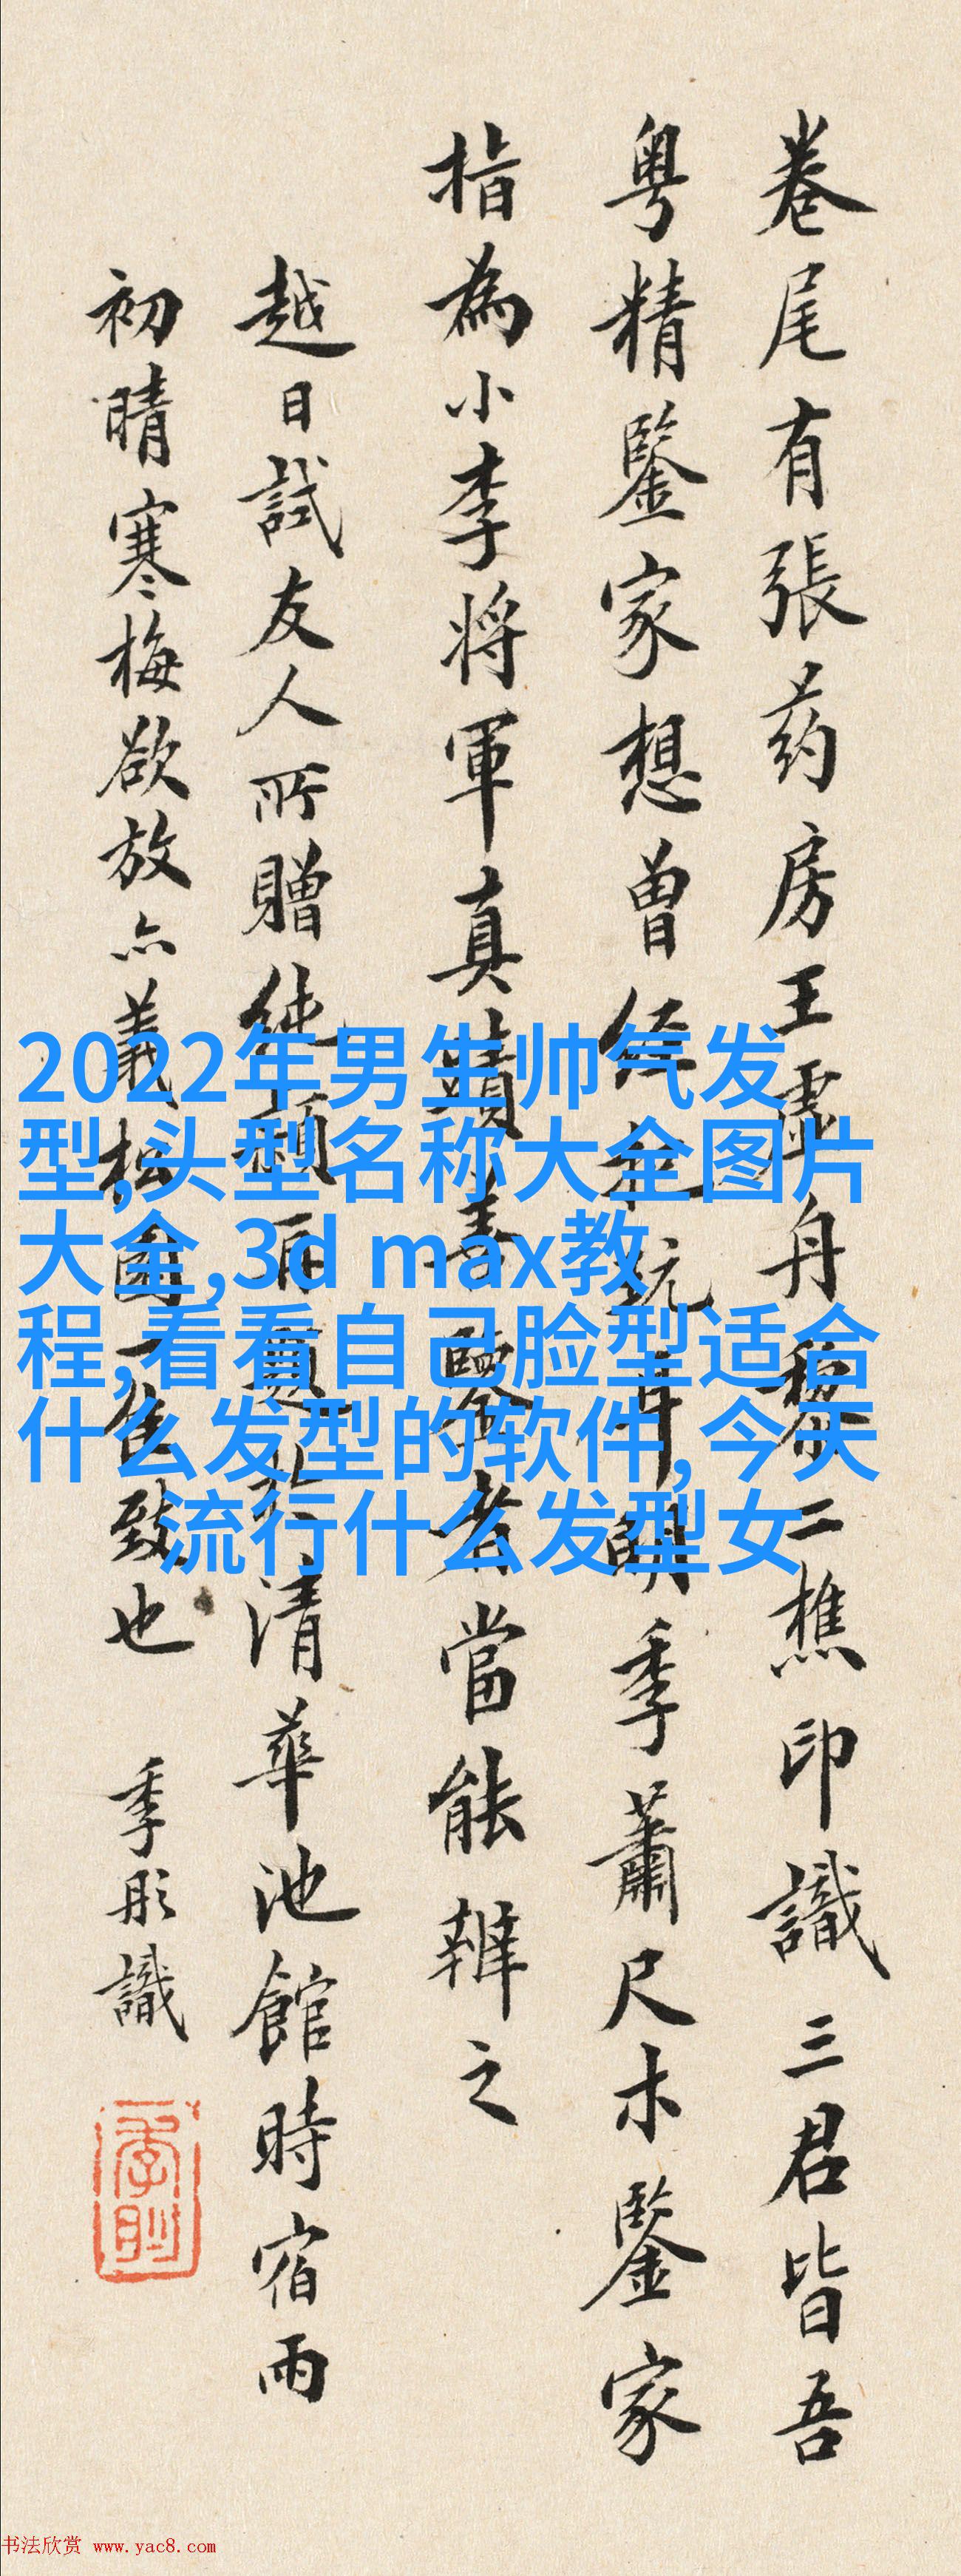 卷尾有張药房王虚舟黎二樵印識三君皆吾
粤精鑒家想曾經明季蕭尺木鑒家
指為小李將軍真蹟善鑒者當能辨之
越日試友人所贈純清華池館時宿雨
初晴寒梅欲放亦義松國一佳致也
季彤識
2022年男生帅气发
型,头型名称大全图片
大全,3d max教
程,看看自己脸型适合
什么发型的软件,今天
流行什么发型女
书法欣赏 www.yac8.com